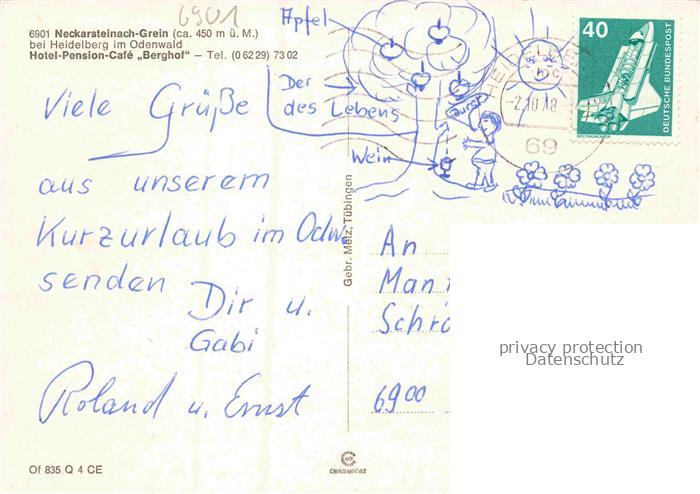 6901
6901 Neckarsteinach-Grein (ca. 450 m ü. M.)
bei Heidelberg im Odenwald
Hotel-Pension-Café „Berghof" – Tel. (0 62 29) 73 02
Apfel
Der
des Lebens
Wein
40
DEUTSCHE BUNDESPOST
-2.10.78
69
Viele Grüße
aus unserem
Kurzurlaub im Odw.
senden
Dir u.
Gabi
Roland u. Ernst
Gebr. Metz, Tübingen
An
Man
Schrö
6900
privacy protection
Datenschutz
Of 835 Q 4 CE